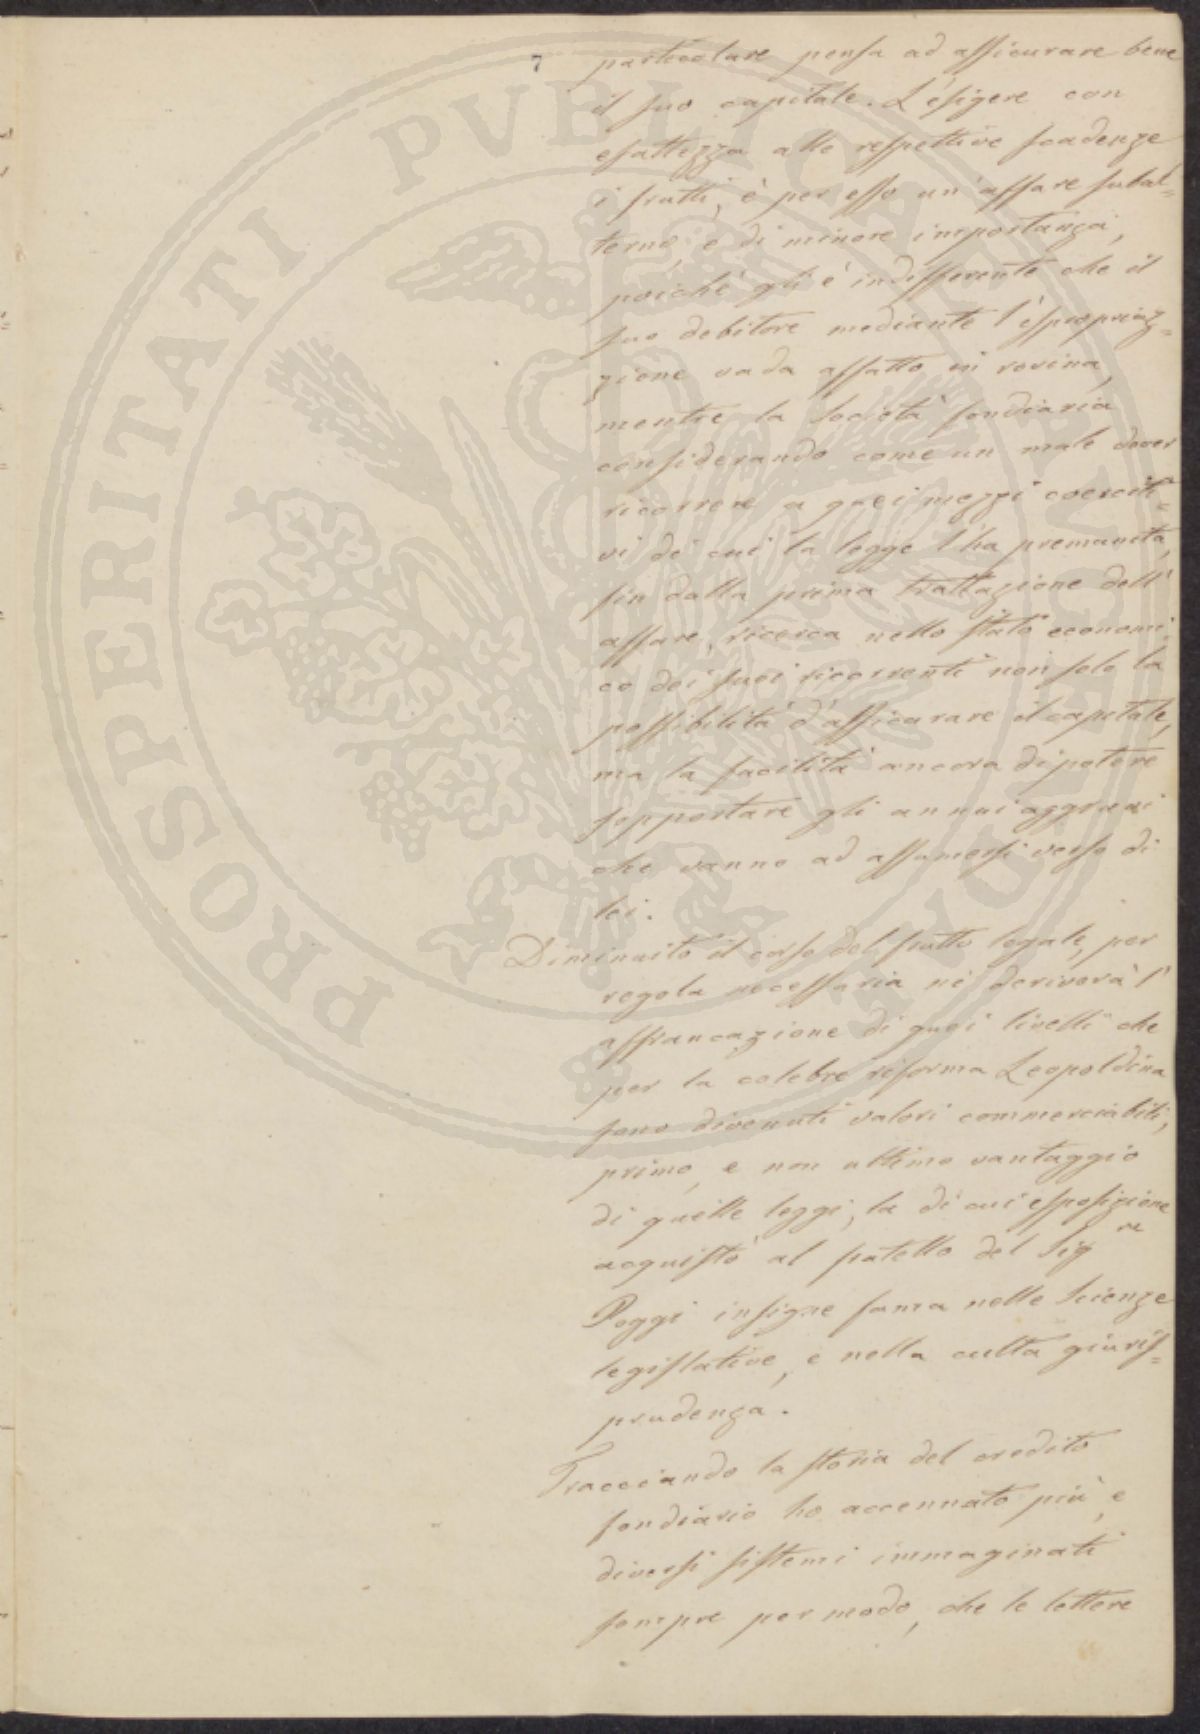 7
particolare pensa ad assicurare bene
il suo capitale. L'esigere con
esattezza alle respettive scadenze
i frutti, è per esso un'affare subal=
terno, e di minore importanza,
poichè gli è indifferente che il
suo debitore mediante l'espropriaz=
zione vada affatto in rovina,
mentre la Società fondiaria
considerando come un male dover
ricorrere a quei mezzi coerciti=
vi di cui la legge l'ha premunita,
fin dalla prima trattazione dell'
affare, ricerca nello stato economi
co dei suoi ricorrenti non solo la
possibilità d'assicurare il capitale,
ma la facilità ancora di potere
sopportare gli annui aggravi
che vanno ad assumersi verso di
lei.
Diminuito il corso del frutto legale, per
regola necessaria nè deriverà l'
affrancazione di quei livelli che
per la celebre riforma Leopoldina
sono divenuti valori commerciabili,
primo, e non ultimo vantaggio
di quelle leggi, la di cui esposizione
acquistò al fratello del Sig.re
Poggi insigne fama nelle Scienze
legislative, e nella culta giuris=
prudenza.
Tracciando la storia del credito
fondiario ho accennato più, e
diversi sistemi immaginati
sempre per modo, che le lettere
PROSPERITATI PVBLICAE AVGENDAE